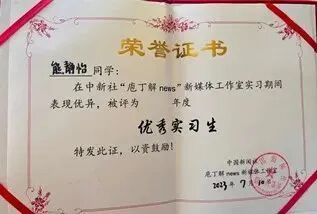 荣誉证书
熊静怡同学：
在中新社“庖丁解news”新媒体工作室实习期间
表现优异，被评为 年度
优秀实习生
特发此证，以资鼓励！
中国新闻社
庖丁解news新媒体工作室
2023年7月10日